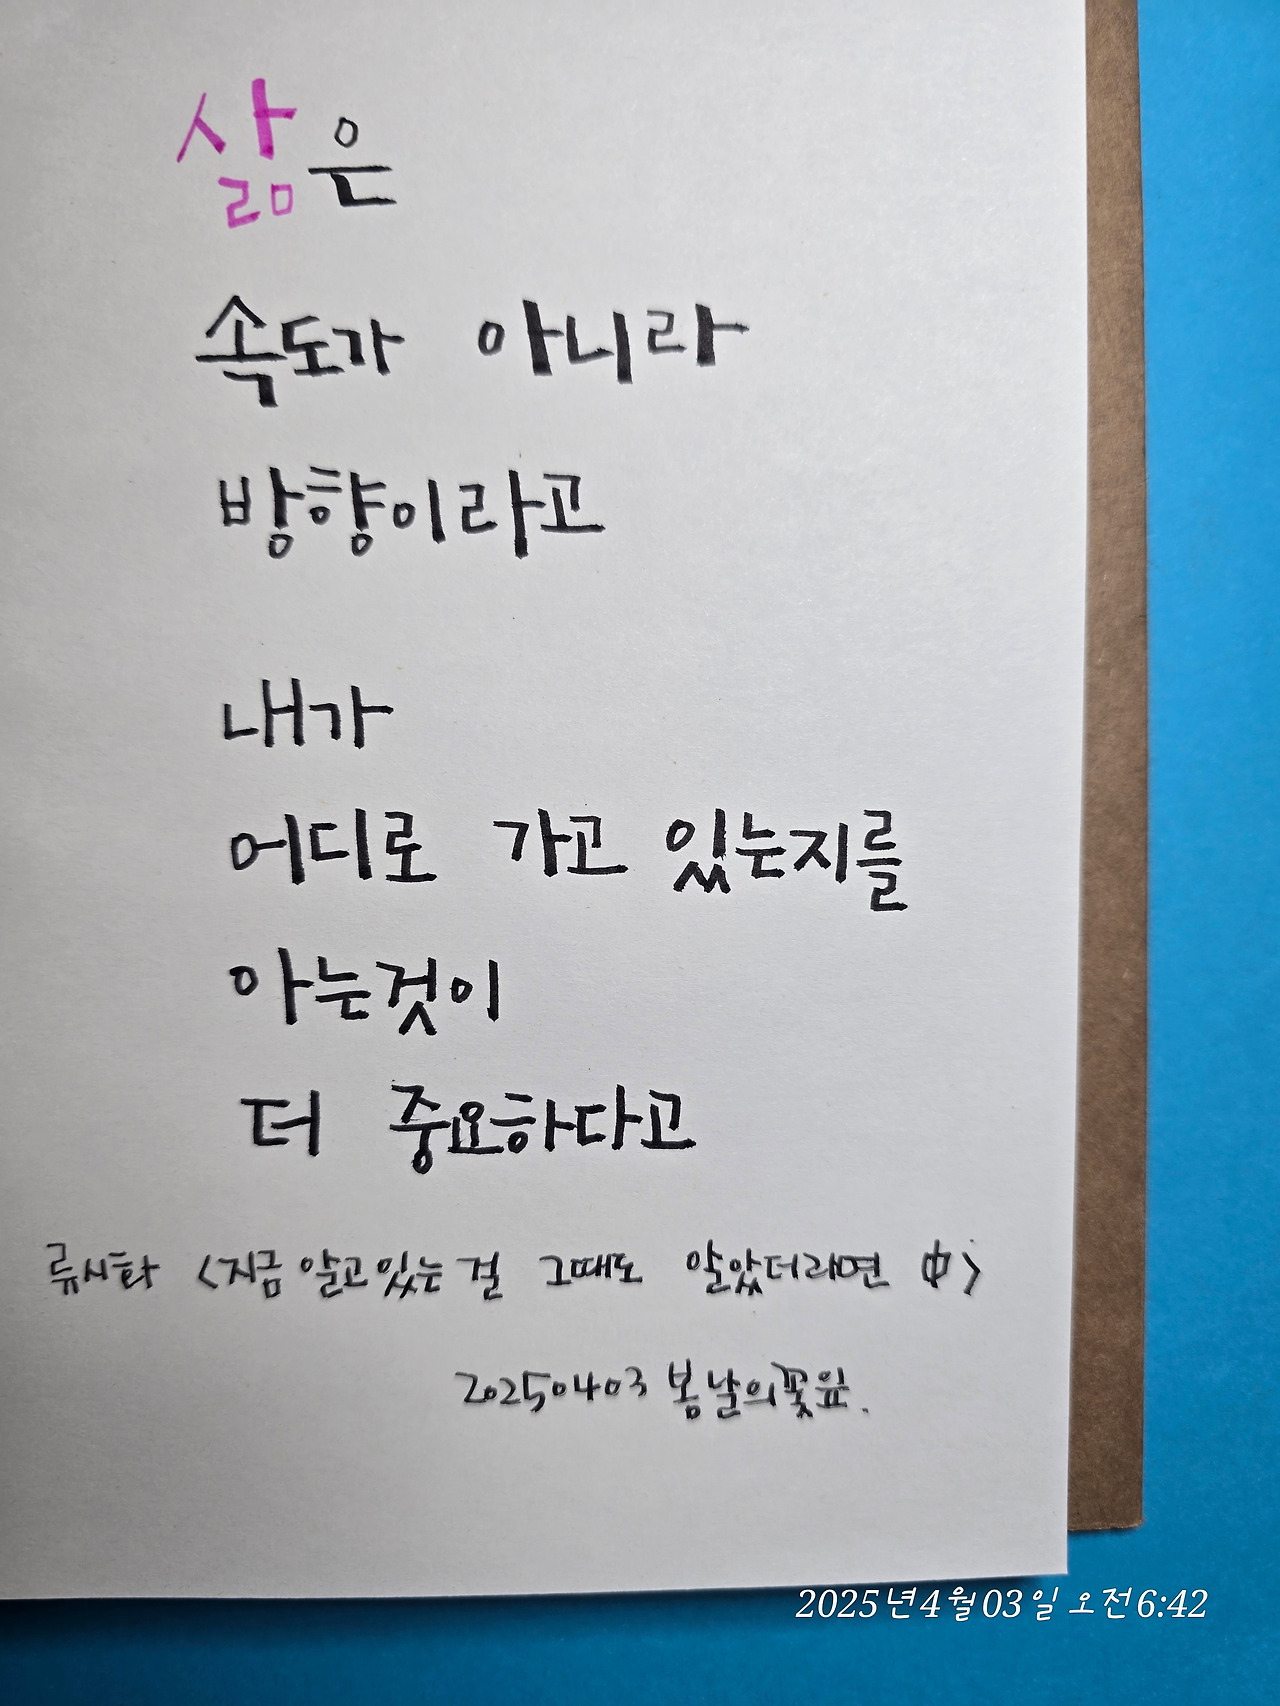 삶은
속도가 아니라
방향이라고
내가
어디로 가고 있는지를
아는것이
더 중요하다고
류시화 <지금 알고있는 걸 그때도 알았더라면 中>
20250403 봄날의꽃잎.
2025년4월03일 오전6:42